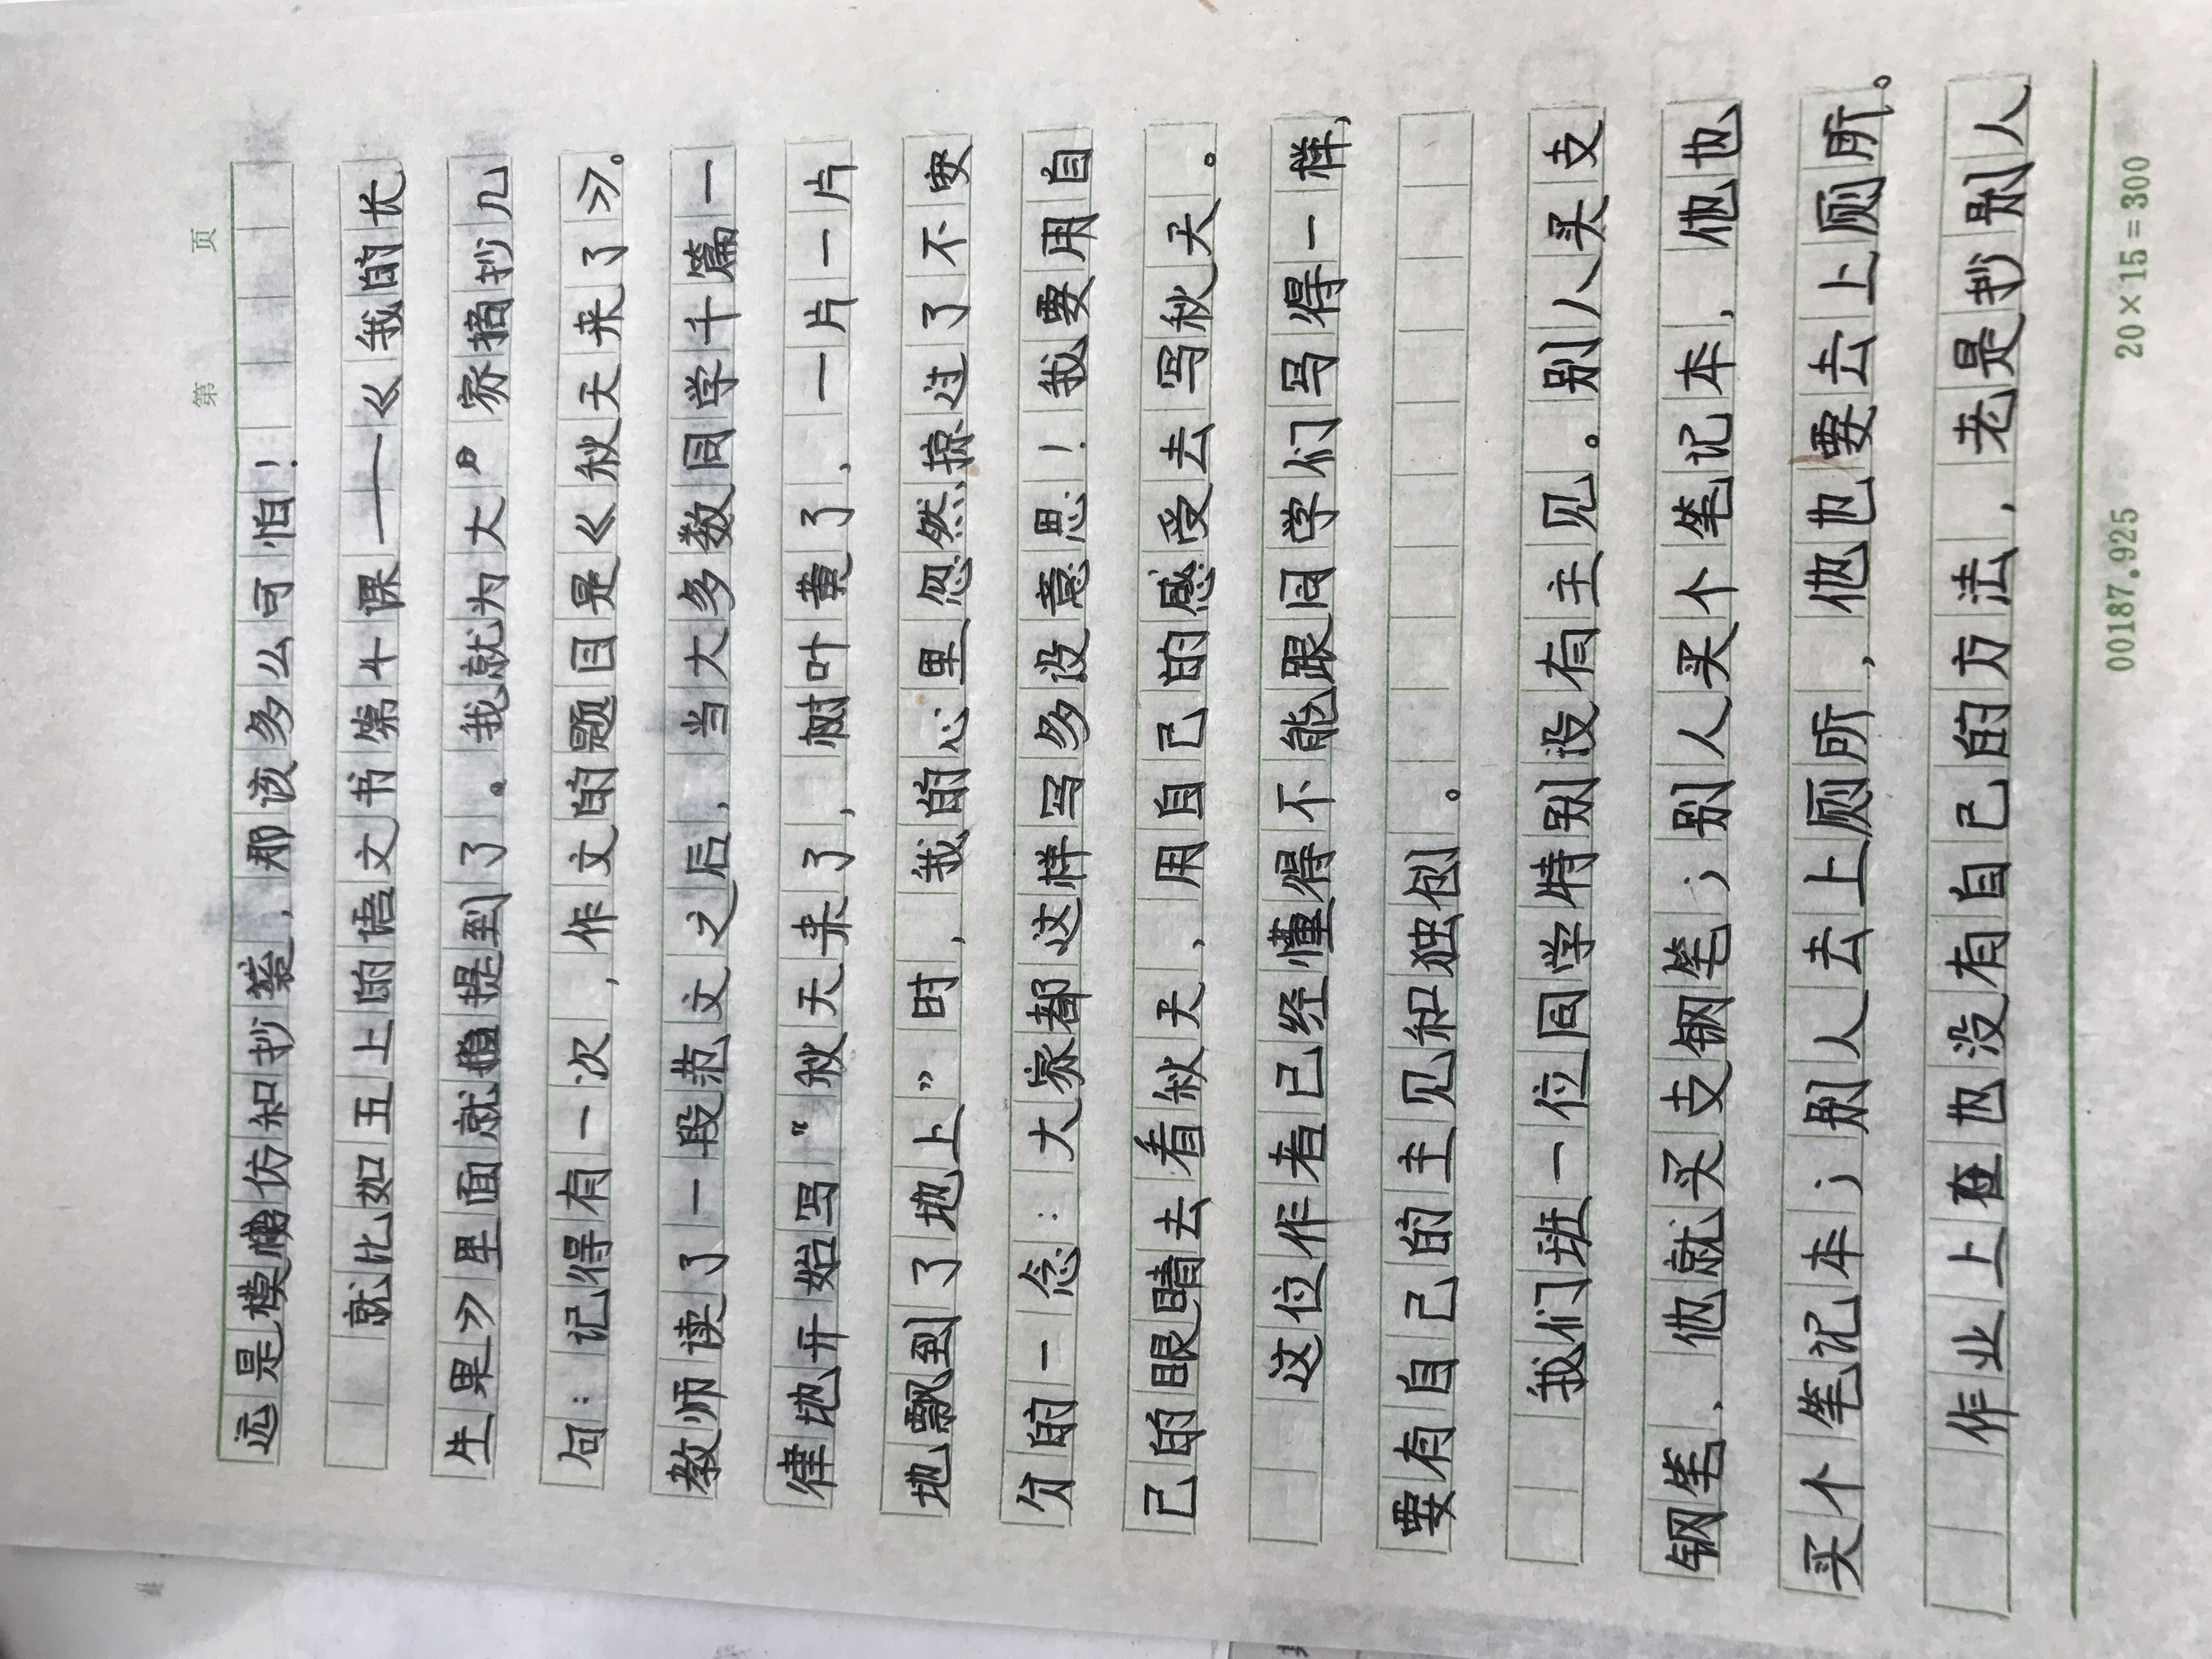 第 页
远是模仿和抄袭，那该多么可怕！
就比如五上的语文书第4课——《我的长
生果》里面就提到了。我就为大家摘抄几
句：记得有一次，作文的题目是《秋天来了》。
教师读了一段范文之后，当大多数同学千篇一
律地开始写“秋天来了，树叶黄了，一片一片
地飘到了地上”时，我的心里忽然掠过了不安
分的一念：大家都这样写多没意思！我要用自
己的眼睛去看秋天，用自己的感受去写秋天。
这位作者已经懂得不能跟同学们写得一样，
要有自己的主见和独创。
我们班一位同学特别没有主见。别人买支
钢笔，他就买支钢笔；别人买个笔记本，他也
买个笔记本；别人去上厕所，他也要去上厕所。
作业上也没有自己的方法，老是抄别人
00187.925 20×15=300